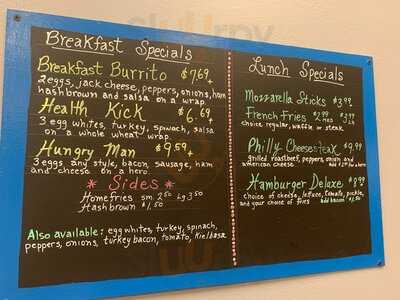 Breakfast Specials
Breakfast Burrito $7.69+
2eggs, jack cheese, peppers, onions, ham
hashbrown and salsa on a wrap.
Health Kick $6.69+
3 egg whites, turkey, spinach, salsa
on a whole wheat wrap.
Hungry Man $9.59+
3 eggs, any style, bacon, sausage, ham
and cheese on a hero.
* Sides *
Homefries sm. 2.50 Lg 3.50
Hashbrown $1.50
Also available: egg whites, turkey, spinach,
peppers, onions, turkey bacon, tomato, Kielbasa
Lunch Specials
Mozzarella Sticks $3.99
French Fries 2.99 3.99
choice regular, waffle or steak
Philly Cheesesteak $9.99
grilled roastbeef, peppers, onion and
american cheese add for a hero
Hamburger Deluxe $9.99
choice of cheese, lettuce, tomato, pickle,
and your choice of fries add bacon $1.50